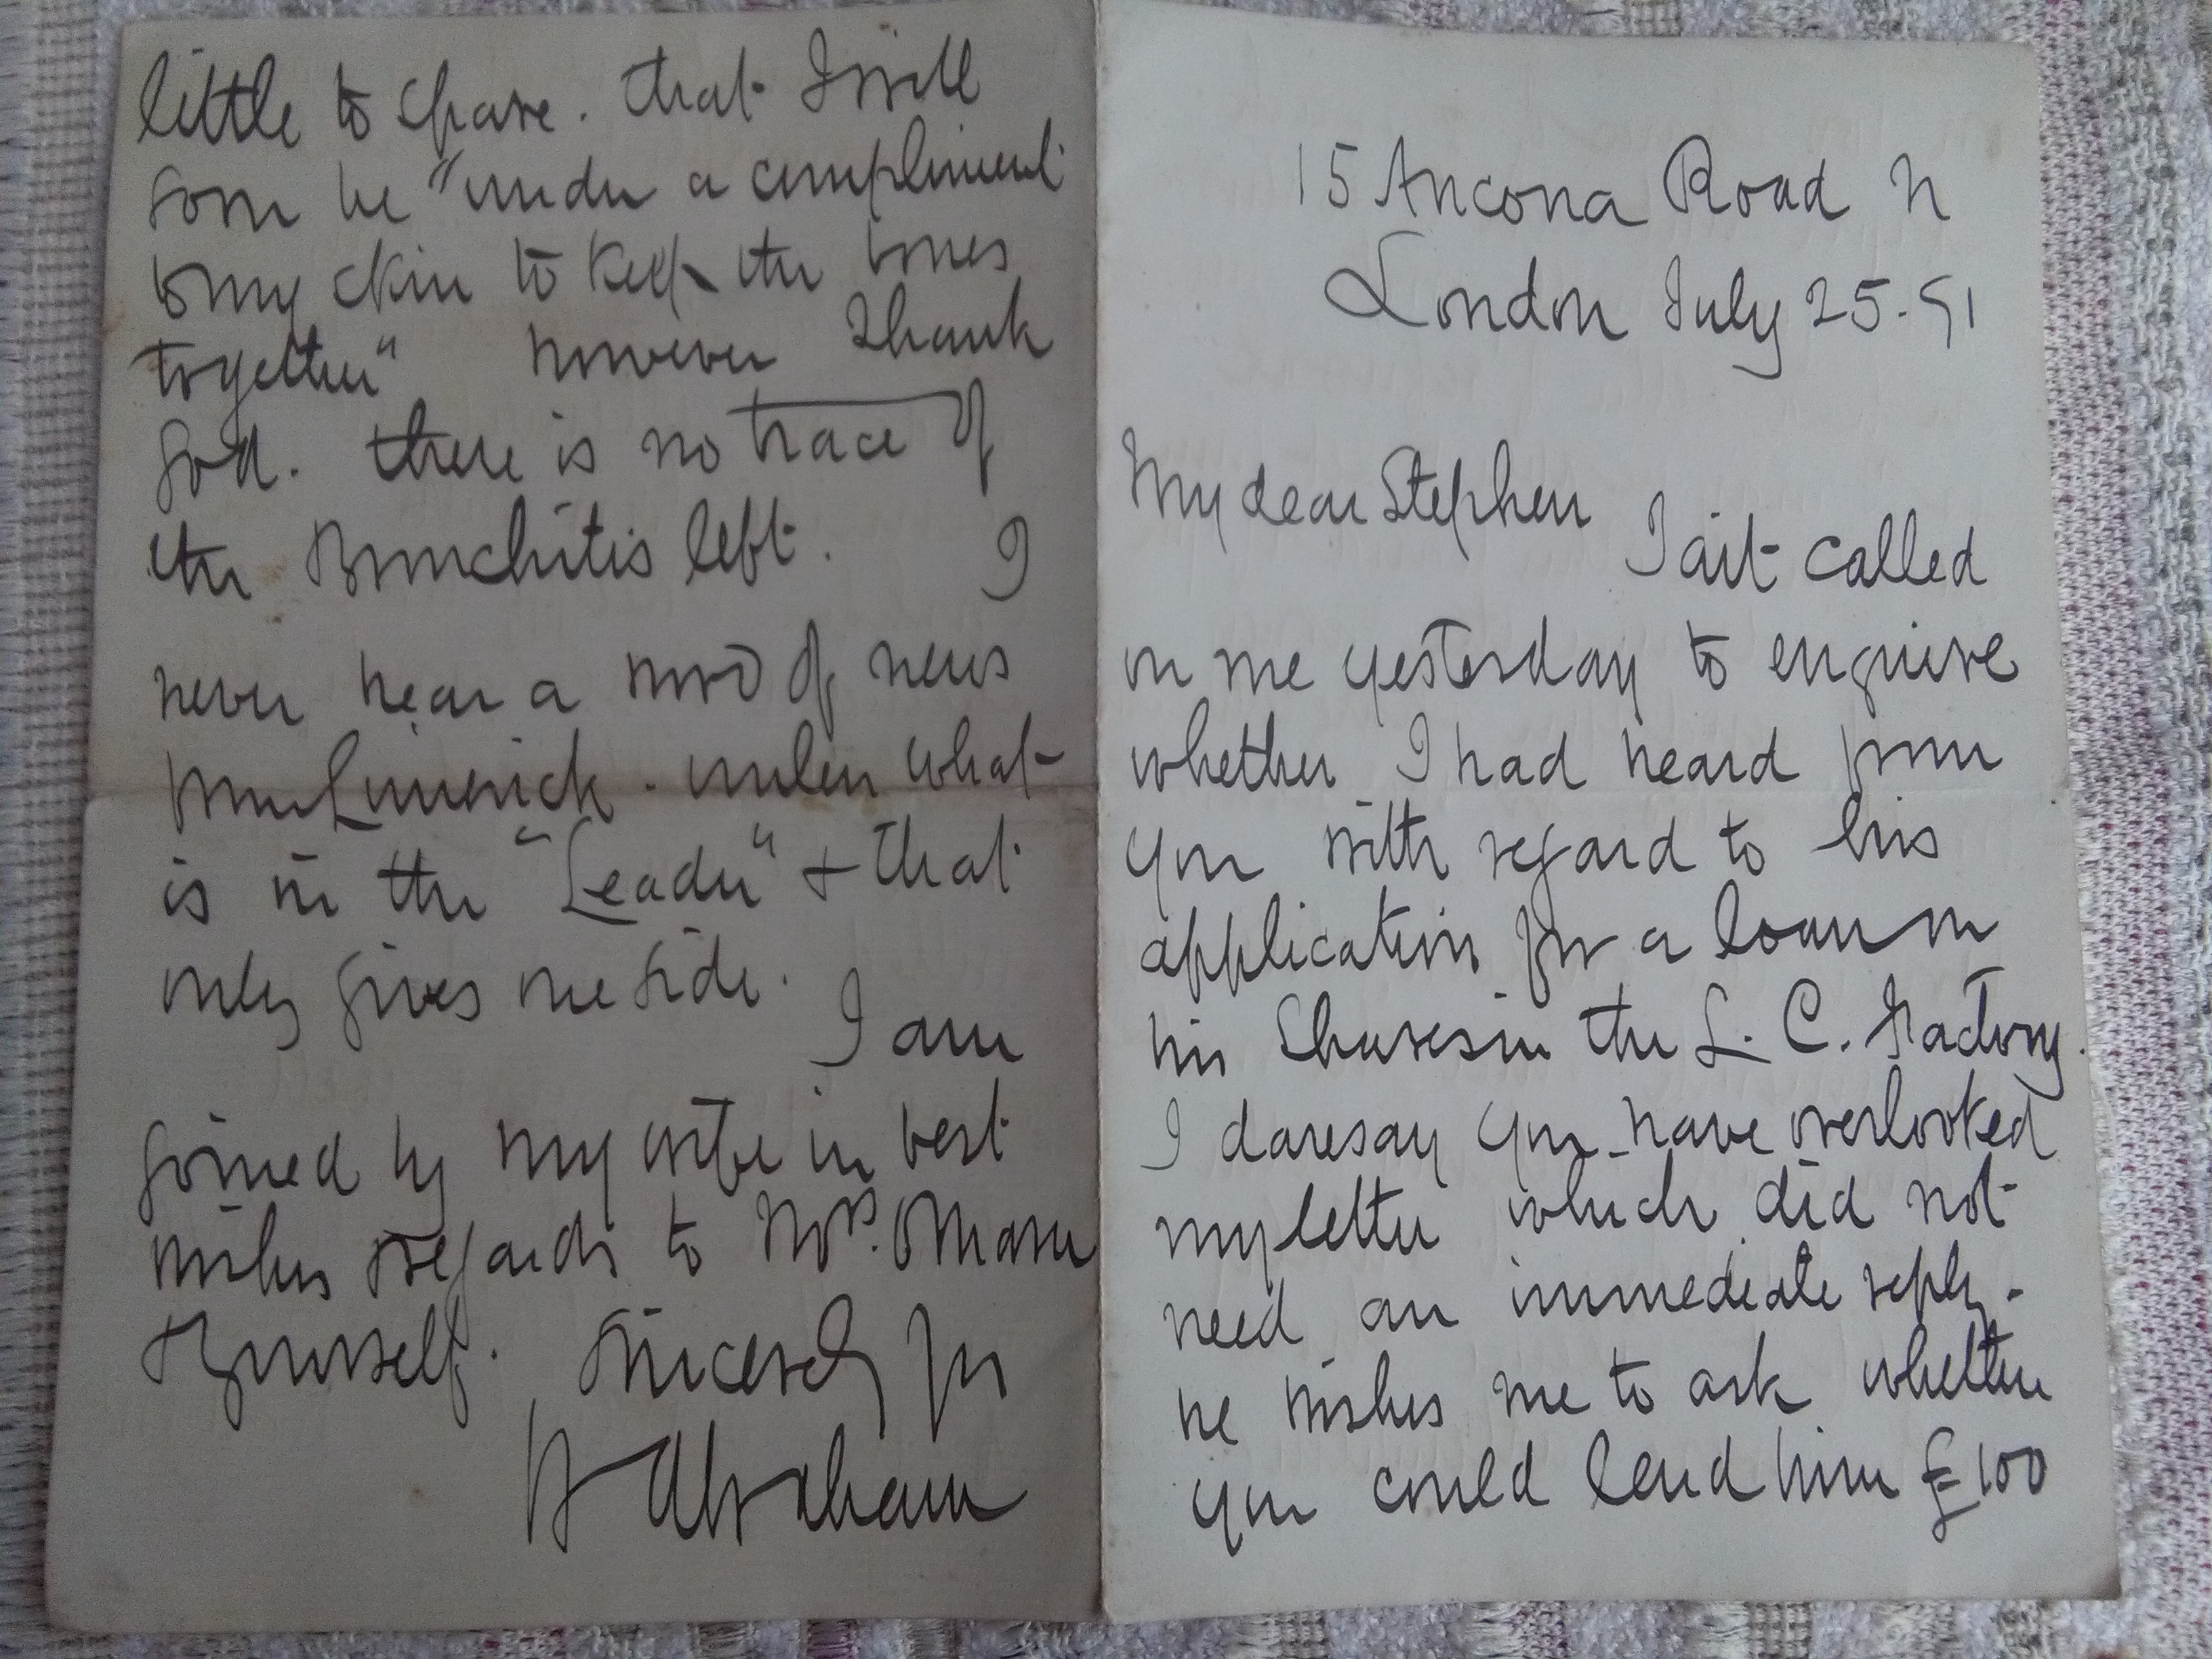 15 Ancona Road N
London July 25. 91
My dear Stephen
Tait called
on me yesterday to enquire
whether I had heard from
you with regard to his
application for a loan on
his Shares in the L. C. Factory.
I daresay you have overlooked
my letter which did not
need an immediate reply.
he wishes me to ask whether
you could lend him £100
little to spare. that I will
soon be "under a compliment
to my skin to keep the bones
together" however thank
God. there is no trace of
the Bronchitis left. I
never hear a word of news
from Limerick. unless what
is in the "Leader" & that
only gives one side.
I am
joined by my wife in best
wishes regards to Mrs. O'Mara
& yourself. Sincerely yrs
W Abraham